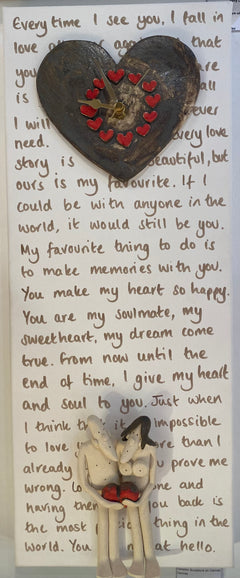 Every time I see you, I fall in
love again that
you are
is all
I will ever
need. Every love
story is beautiful, but
ours is my favourite. If I
could be with anyone in the
world, it would still be you.
My favourite thing to do is
to make memories with you.
You make my heart so happy.
You are my soulmate, my
sweetheart, my dream come
true. From now until the
end of time, I give my heart
and soul to you. Just when
I think it impossible
to love more than I
already you prove me
wrong. one and
having them you back is
the most thing in the
world. You at hello.